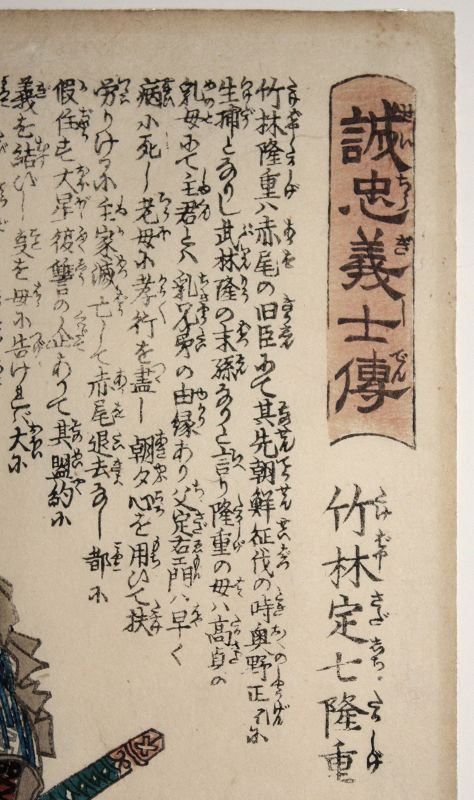 誠忠義士傳
竹林定七隆重
竹林隆重ハ赤尾の旧臣にて其先朝鮮征伐の時奥野正引に
生捕となりし武林隆の末孫なりと言り隆重の母ハ高貞の
乳母にて主君とハ乳兄弟の由縁あり父定右エ門ハ早く
病に死し老母に孝行を盡し朝夕心を用ひて扶
労りけるに主家滅亡して赤尾退去なし都に
假住も大星復讐の企ありて其盟約に
義を結びし更を母に告けれバ大に